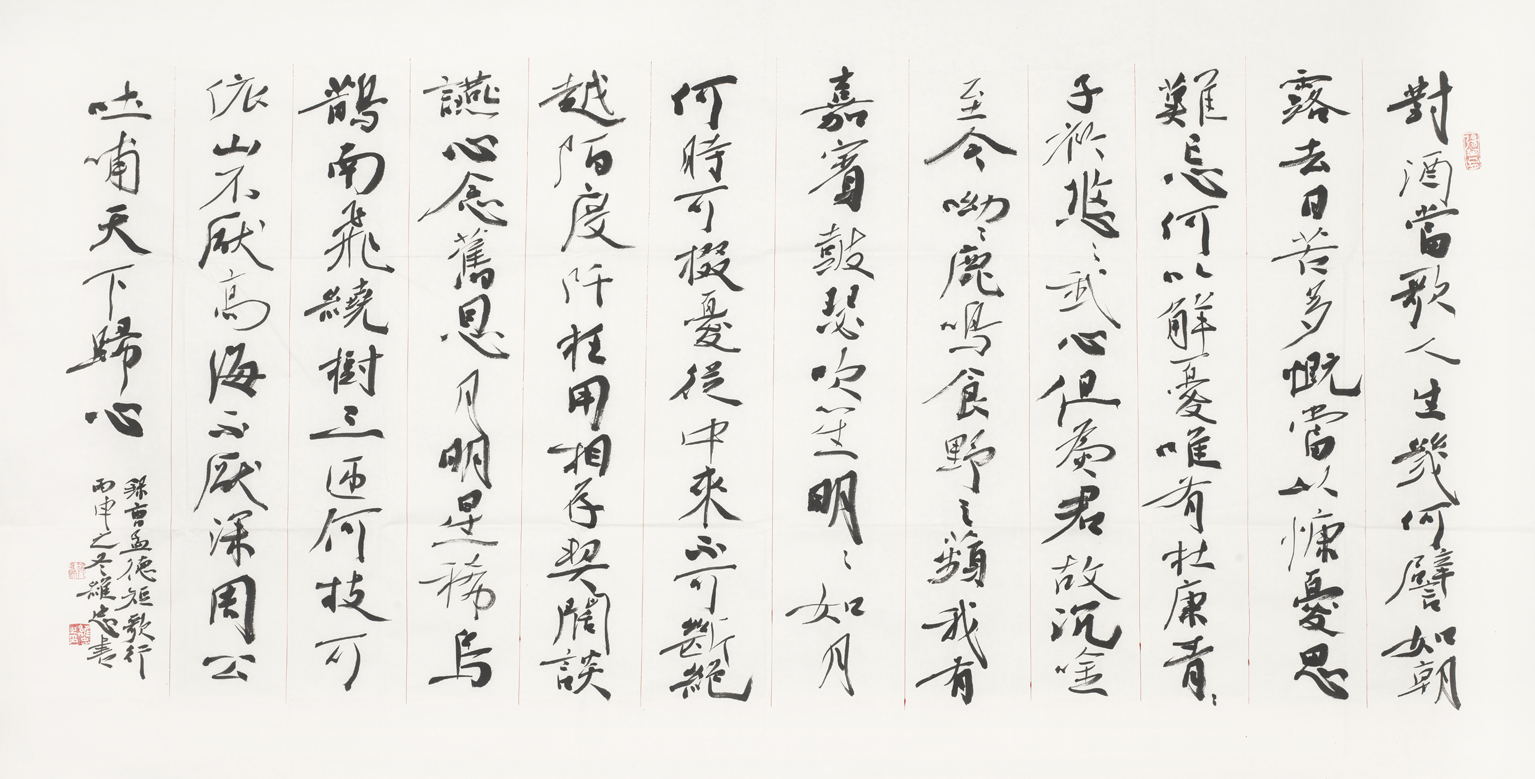 對酒當歌人生幾何譬如朝
露去日苦多慨當以慷憂思
難忘何以解憂唯有杜康青〻
子衿悠〻我心但為君故沉唫
至今呦〻鹿鳴食野之蘋我有
嘉賓鼓瑟吹笙明〻如月
何時可掇憂從中來不可斷絕
越陌度阡枉用相存契闊談
讌心念舊恩月明星稀烏
鵲南飛繞樹三匝何枝可
依山不厭高海不厭深周公
吐哺天下歸心
錄曹孟德短歌行
丙申之冬雄忠書